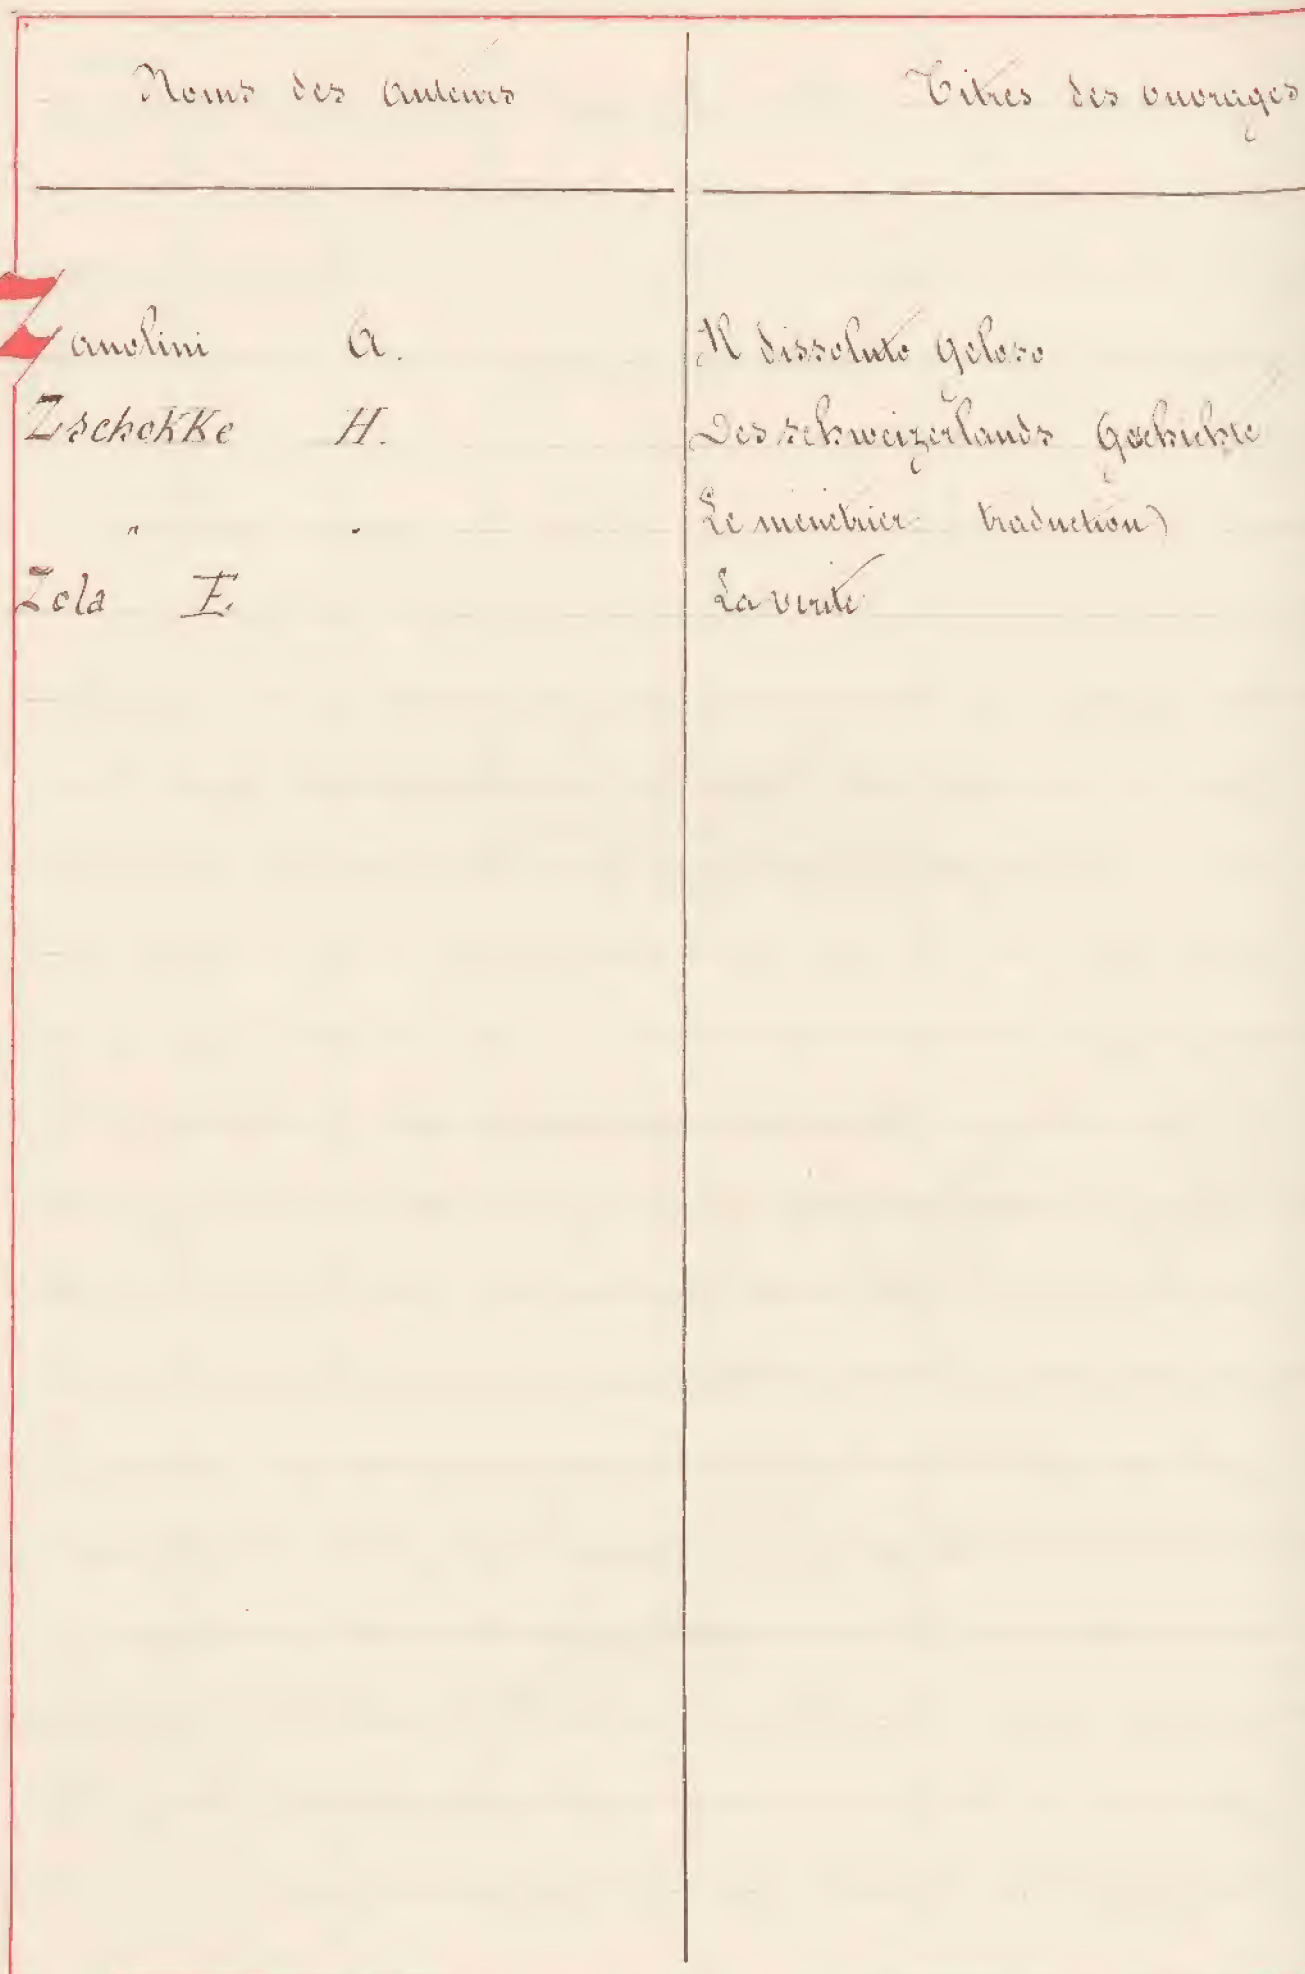 Noms des auteurs Titres des ouvrages
Zanolini A. Il dissoluto geloso
Zschokke H. Des schweizerlands Geschichte
" . Le menetrier traduction)
Zola E. La verité